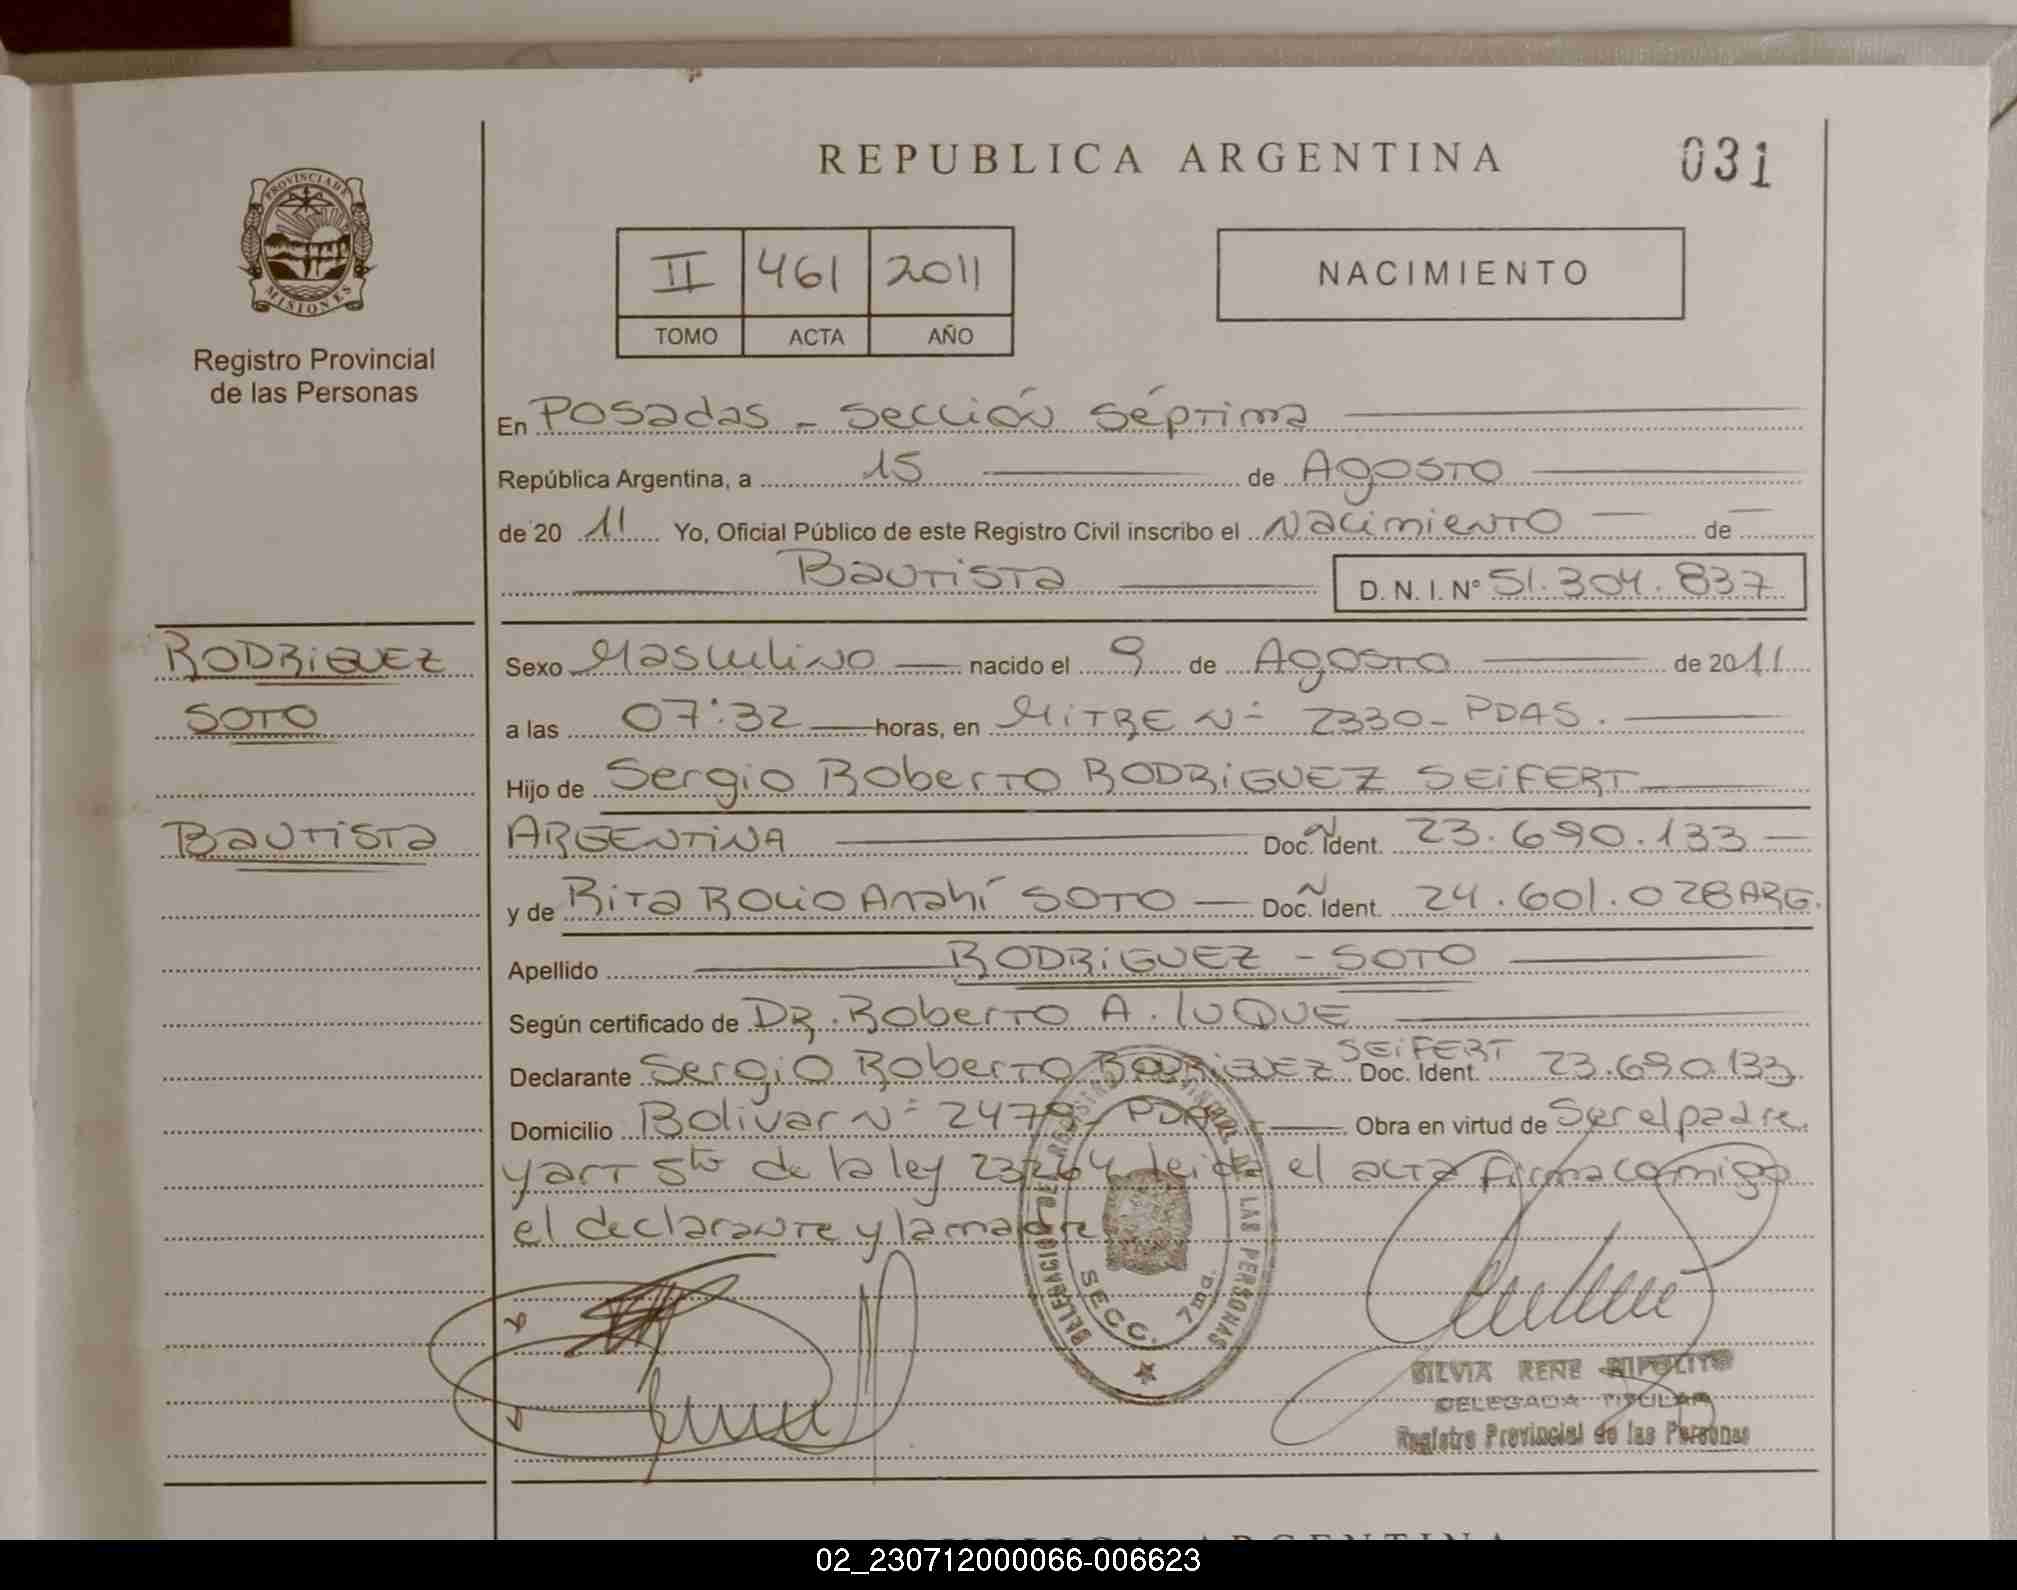 REPUBLICA ARGENTINA
031
PROVINCIA DE
MISIONES
Registro Provincial
de las Personas
II 461 2011
TOMO ACTA AÑO
NACIMIENTO
En Posadas - Sección Séptima
República Argentina, a 15 de Agosto
de 20 11 Yo, Oficial Público de este Registro Civil inscribo el Nacimiento de
Bautista D. N. I. Nº 51.304.837
RODRiGUEZ
SOTO
Bautista
Sexo Masculino nacido el 9 de Agosto de 2011
a las 07:32 horas, en MiTRE Nº 2330- PDAS.
Hijo de Sergio Roberto RODRiGUEZ SEiFERT
ARGENTiNA Doc. Ident. 23.690.133
y de Rita Rocio Anahí SOTO Doc. Ident. 24.601.028 ARG.
Apellido RODRiGUEZ - SOTO
Según certificado de DR. Roberto A. LUQUE
Declarante Sergio Roberto RODRiGUEZ SEiFERT Doc. Ident. 23.690.133
Domicilio Bolivar Nº 2479- PDAS Obra en virtud de Ser el padre
y art 5to de la ley 23264 leida el acta firma comigo
el declarante y la madre
DELEGACION DE REGISTRO PROVINCIAL DE LAS PERSONAS
SECC. 7ma.
SILVIA RENE HIPOLITO
DELEGADA TITULAR
Registro Provincial de las Personas
REPUBLICA ARGENTINA
02_230712000066-006623